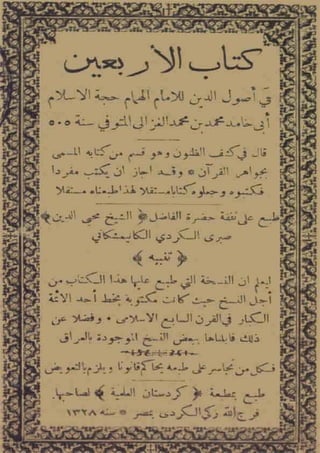 كتاب الأربعين
في أصول الدين للامام الهمام حجة الاسلام
أبي حامد محمد بن محمد الغزالى المتوفي سنة ٥٠٥
قال في كشف الظنون وهو قسم من كتابه المسمى
بجواهر القرآن * وقد اجاز ان يكتب مفردا
فكتبوه وجعلوه كتابا مستقلا لهذا طبعناه مستقلا
طبع على نفقة حضرة الفاضل ﴿ الشيخ محيى الدين ﴾
صبرى الكردي الكانيمشكاني
﴿ تنبيه ﴾
ليعلم ان النسخة التي طبع عليها هذا الكتاب من
أجل النسخ حيث كانت مكتوبة بخط أحد الائمة
الكبار في القرن السابع الاسلامى * وفضلا عن
ذلك قابلناها ببعض النسخ الموجودة بالعراق
فكل من تجاسر على طبعه يحاكم قانونا ويلزم بالتعويض
طبع بمطبعة ﴿ كردستان العلمية ﴾ لصاحبها
فرج الله زكي الكردى بمصر * سنة ١٣٢٨